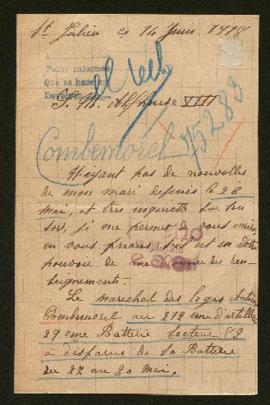 St Julien ce 14 Juin 1918
S. M. Alphonse XIII
Combemorel 75283
N'ayant pas de nouvelles
de mon mari depuis le 26
Mai, et très inquiette sur son
sort, je me permet de vous écrire
en vous priant s'il est en votre
pouvoir de me donner des ren-
seignements.
Le marechal des logis Antoine
Combemorel au 272 eme d'artillerie
29 eme Batterie Secteur 89
a disparus de sa Batterie
du 27 au 30 Mai.